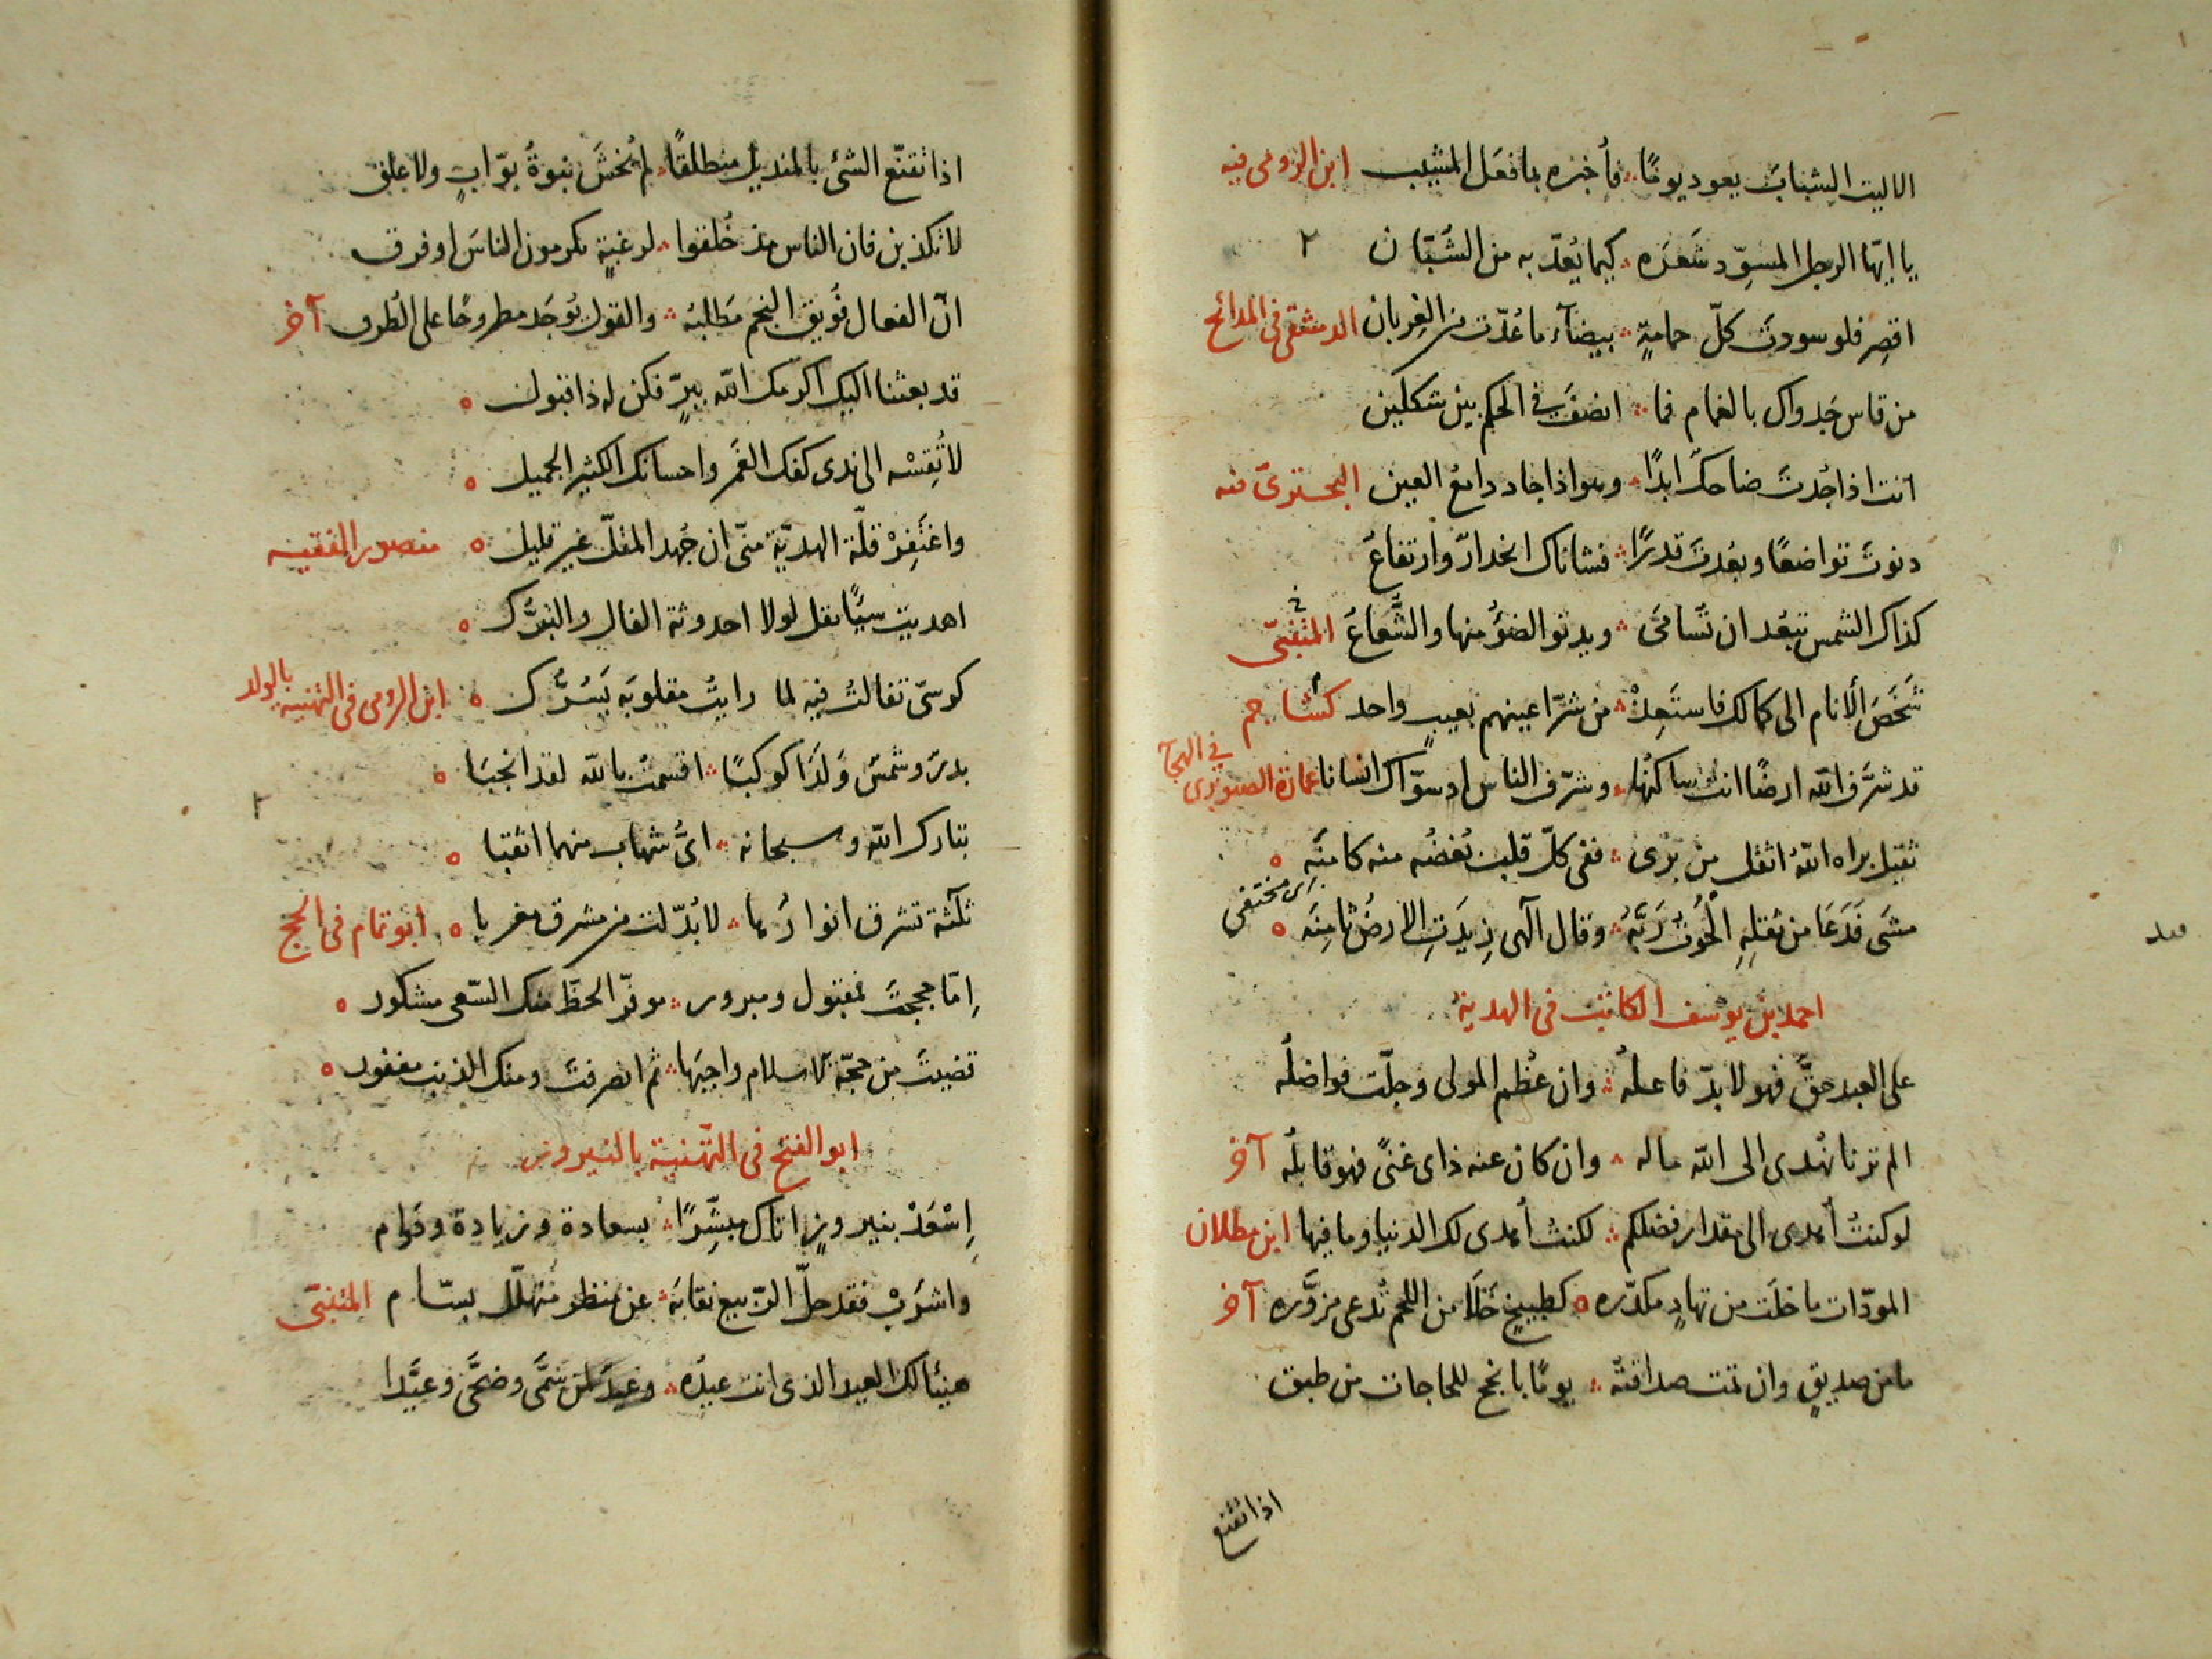 الا ليت الشباب يعود يومًا فأخبره بما فعل المشيب ابن الرومى فيه
يا ايّها الرجل المسوّد شعره كيما يُعدّ به من الشبّان ٢
اقصِر فلو سودت كلّ حمامةٍ بيضآء ما عُدّت من الغِربان الدمشقى فى المدائح
من قاس جدواك بالغمام فما انصف فى الحكم بين شكلين
انت اذا جُدتَ ضاحكٌ ابدًا وهو اذا جاد دامع العين البحترىّ فيه
دنوتَ تواضعًا وبعُدتَ قدرًا فشاناك انحدارٌ وارتفاعُ
كذاك الشمس تبعُد ان تُسامَى ويدنو الضوُ منها والشُّعاعُ المتنبّى
شَخَصَ الانام الى كمالك فاستَعِذْ من شرّ اعينهم بعيبٍ واحد كشاجم
قد شرّف الله ارضًا انت ساكنُها وشرّف الناس اذ سوّاك انسانا عمارة الصنوبرى
فى الهجا
ثقيل براه اللهُ اثقل من يرى ففى كلّ قلب بُغضُه منه كامنَه ٥
اى مختفى
مشَى فَدَعَا من ثقلِهِ الحُوتُ رَبَّهُ وقال آلهى زِيدَتِ الارضُ ثامِنَه ٥
احمد بن يوسف الكاتب فى الهدية
على العبد حقٌّ فهو لا بدّ فاعلُهُ وان عظُم المولى وجلّت فواضلُه
الم ترنا نُهدى الى الله ماله وان كان عنه ذا غنًى فهو قابلُه آخر
لو كنتُ اُهدى الى مقدار فضلكم لكنتُ اُهدى لك الدنيا وما فيها ابن مطلان
المودّات ما خلَت من تهادٍ مكدّره ٥ كطبيخٍ خَلَا من اللحم تُدعى مزوَّره آخر
ما من صديقٍ وان تمت صداقتُه يومًا بانجح للحاجات من طبق
اذا تقنع
اذا تقنّع الشئ بالمنديل منطلقًا لم يُخشَ نبوةُ بوّابٍ ولا غلق
لا تكذبن فان الناس مذ خُلقوا لرغبةٍ يكرمون الناسَ او فرق
انّ الفعال فُويق النجم مَطلبُه والقول يُوجَد مطروحًا على الطُرق آخر
قد بعثنا اليك اكرمك الله ببرٍّ فكن له ذا قبول ٥
لا تُقِسْه الى ندى كفك الغَمر واحسانك الكثير الجميل ٥
واغتَفِرْ قلّة الهديّة منّى ان جُهد المقلّ غير قليل ٥ منصور الفقيه
اهديت سيًا يقل لولا احدوثة الفال والتبرُّك ٥
كرسىّ تفالتُ فيه لما رايتُ مقلوبَه يَسُرُّك ٥ ابن الرومى فى التهنية بالولد
بدرٌ وشمسٌ وَلَدَا كوكبًا اقسمتُ بالله لقد انجبَا ٥
تبارك الله وسبحانه اىُّ شهاب منهما اثقبا ٥
ثلثة تشرق انوارُها لا بُدّلت من مشرق مغربا ٥ ابو تمام فى الحج
اِمّا حججتَ فمقبول ومبرور موفّر الحظّ منك السّعى مشكور ٥
قضيتَ من حجّة الاسلام واجبَها ثم انصرفتَ ومنك الذنب مغفور ٥
ابو الفتح فى التّهنية بالنيروز
اِسْعَدْ بنيروزٍ اتاك مبشّرًا بسعادة وزيادة ودَوام
واشرَبْ فقد حلّ الرّبيع نقابَه عن منظر مُتهلّل بسّام المتنبّى
هنيئا لك العيد الذى انت عيدُه وعيدٌ لمن سَمَّى وضحَّى وعيَّدا